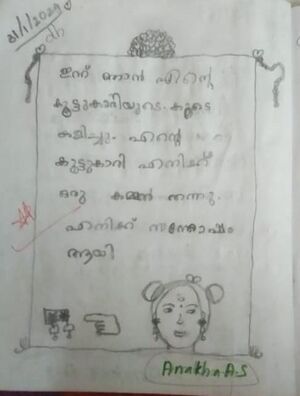 31/1/2024
ഇന്ന് ഞാൻ എന്റെ
കൂട്ടുകാരിയുടെ കൂടെ
കളിച്ചു. എന്റെ
കൂട്ടുകാരി എനിക്ക്
ഒരു കമ്മൽ തന്നു.
എനിക്ക് സന്തോഷം
ആയി
Anakha A.S